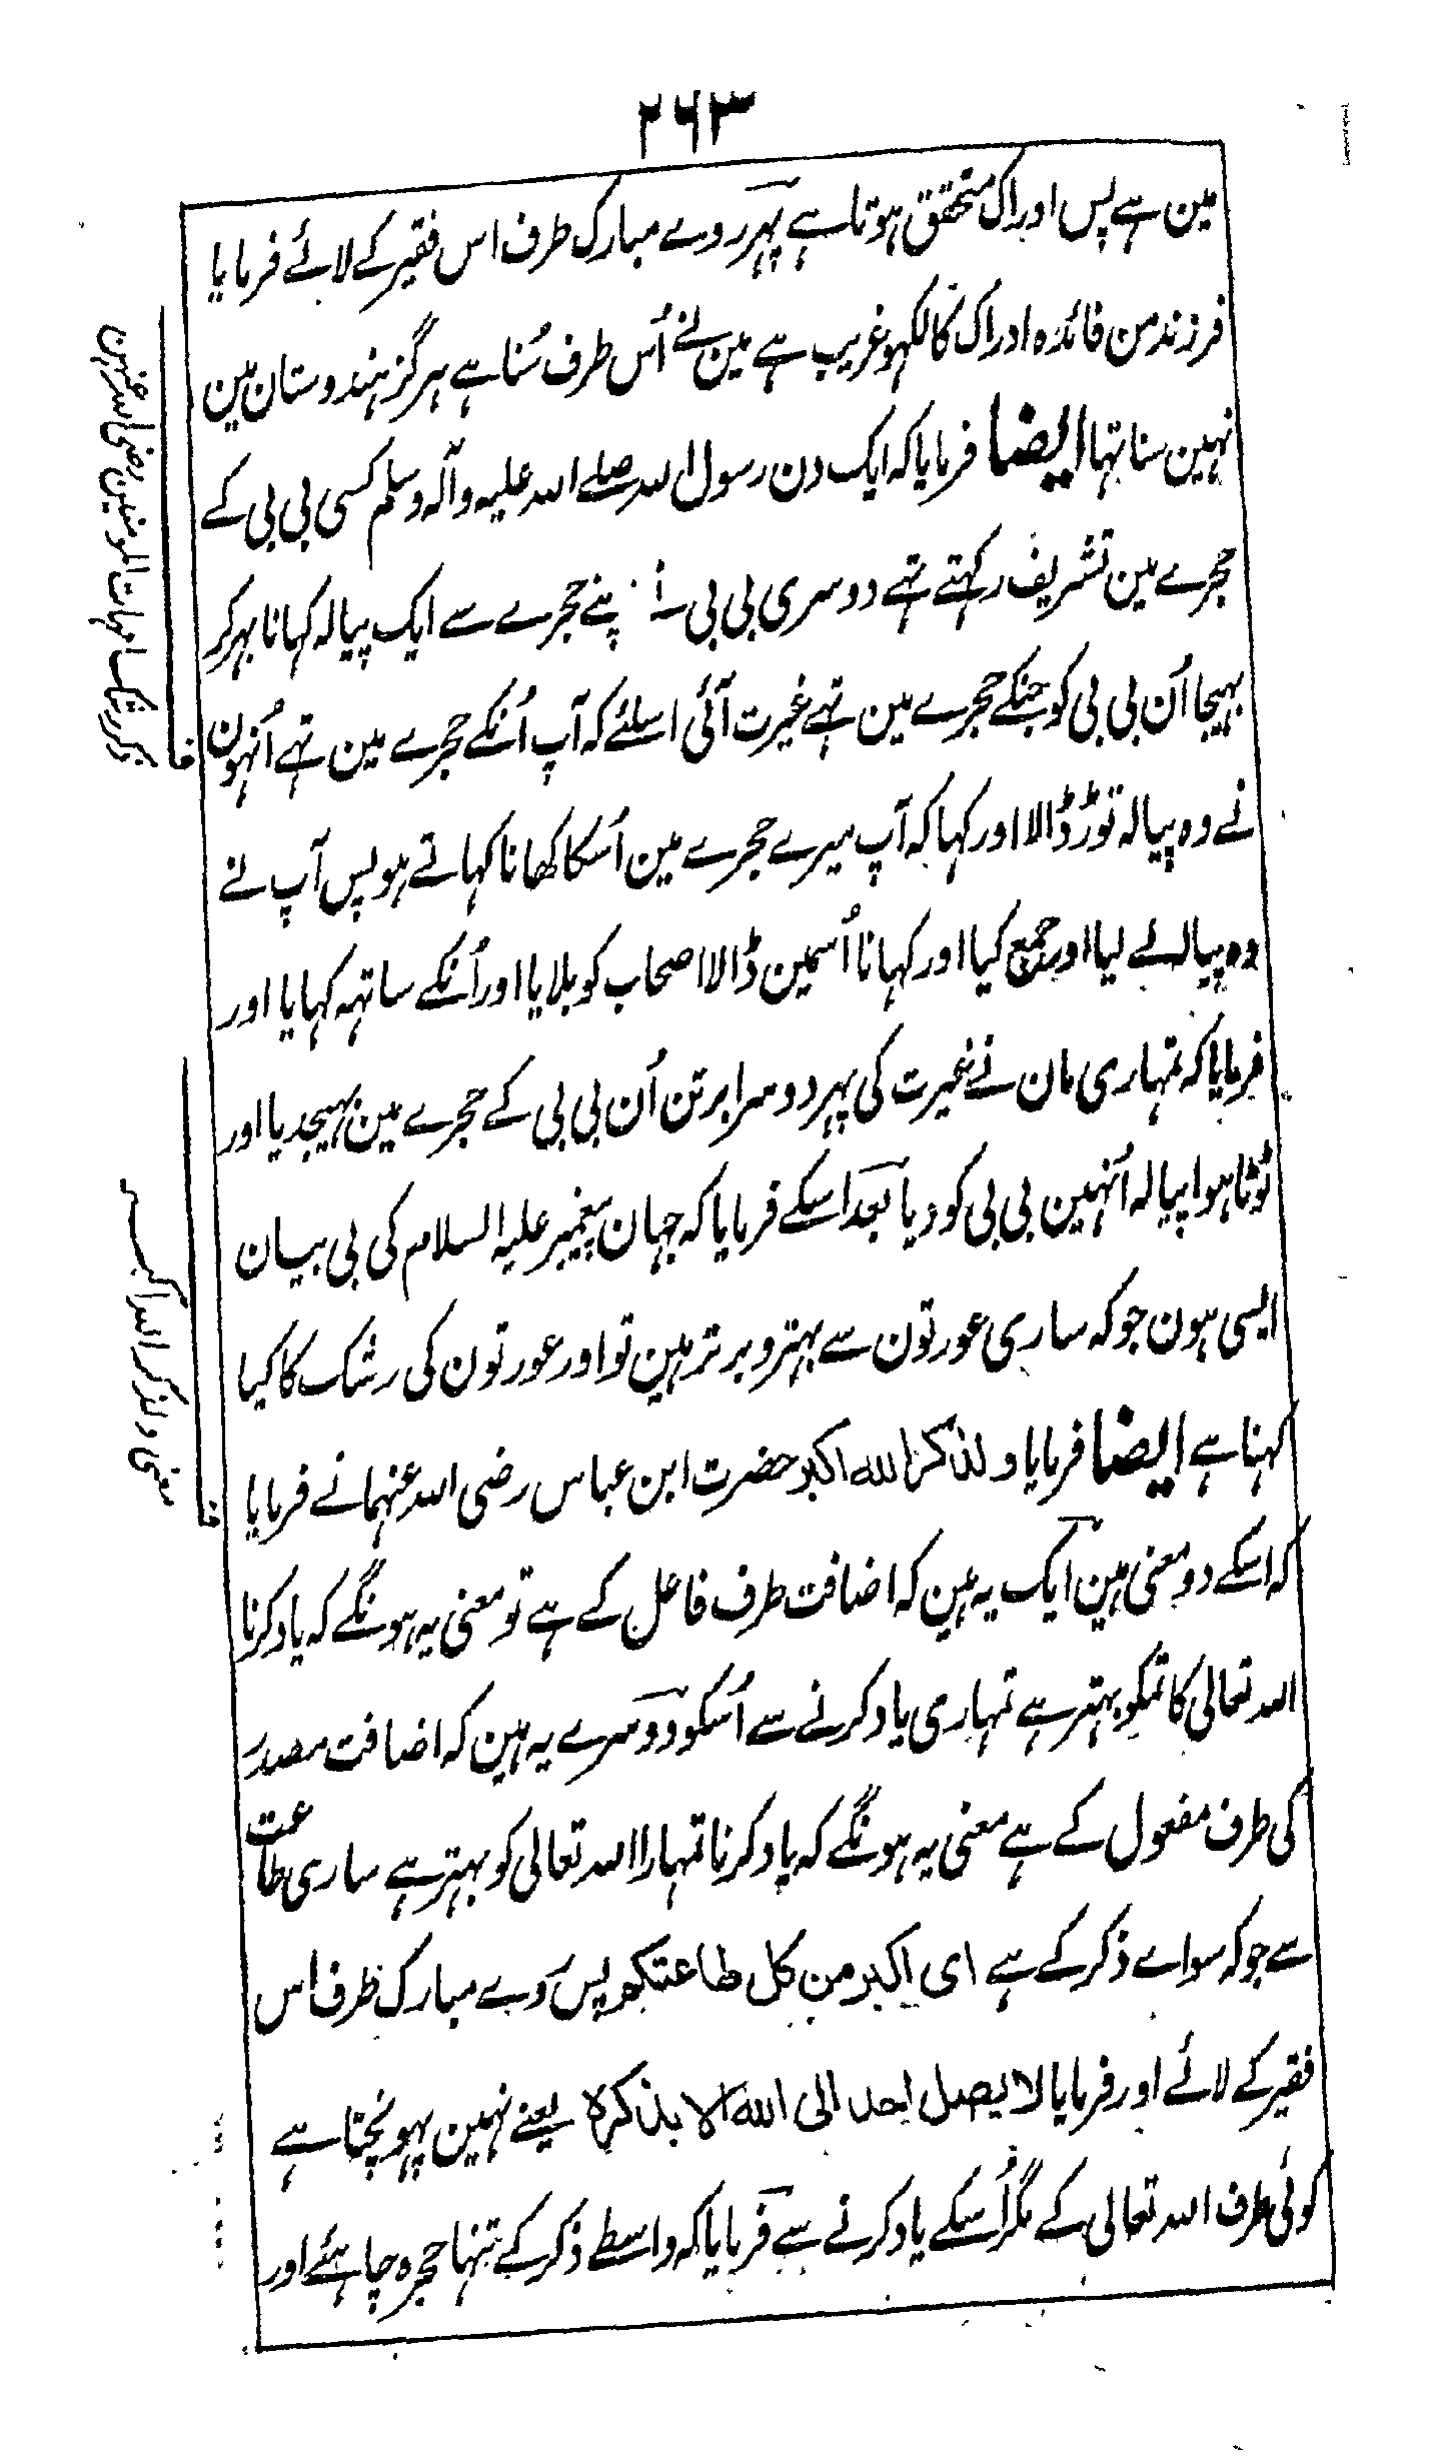 ۲۶۳
مین ہے پس ادراک متحقق ہوتا ہے پہر روے مبارک طرف اس فقیر کے لائے فرمایا
فرزند من فائدہ ادراک کا لکہو غریب ہے مین نے اُس طرف سُنا ہے ہرگز ہندوستان مین
نہین سنا تہا ایضا فرمایا کہ ایک دن رسول اللہ صلے اللہ علیہ وآلہ وسلم کسی بی بی کے
حجرے مین تشریف رکہتے تہے دوسری بی بی نے اپنے حجرے سے ایک پیالہ کہانا بہر کر
بہیجا اُن بی بی کو جنکے حجرے مین تہے غیرت آئی اسلئے کہ آپ اُنکے حجرے مین تہے اُنہون
نے وہ پیالہ توڑ ڈالا اور کہا کہ آپ میرے حجرے مین اُسکا کھانا کہاتے ہو پس آپ نے
وہ پیالہ لے لیا اور جمع کیا اور کہانا اُسمین ڈالا اصحاب کو بلایا اور اُنکے ساتہہ کہایا اور
فرمایا کہ تمہاری مان نے غیرت کی پہر دوسرا برتن اُن بی بی کے حجرے مین بہیجدیا اور
ٹوٹا ہوا پیالہ اُنہین بی بی کو دیا بعد اسکے فرمایا کہ جہان پیغمبر علیہ السلام کی بی بیان
ایسی ہون جو کہ ساری عورتون سے بہتر و برتر ہین تو اور عورتون کی رشک کا کیا
کہنا ہے ایضا فرمایا ولذکر الله اکبر حضرت ابن عباس رضی اللہ عنہما نے فرمایا
کہ اسکے دو معنی ہین ایک یہ ہین کہ اضافت طرف فاعل کے ہے تو معنی یہ ہونگے کہ یاد کرنا
اللہ تعالی کا تمکو بہتر ہے تمہاری یاد کرنے سے اُسکو دوسرے یہ ہین کہ اضافت مصدر
کی طرف مفعول کے ہے معنی یہ ہونگے کہ یاد کرنا تمہارا اللہ تعالی کو بہتر ہے ساری طاعت
سے جو کہ سواے ذکر کے ہے ای اکبر من کل طاعتکم پس روے مبارک طرف اس
فقیر کے لائے اور فرمایا لا یصل احد الی الله الا بذکره یعنے نہین پہونچتا ہے
کوئی طرف اللہ تعالی کے مگر اُسکے یاد کرنے سے فرمایا کہ واسطے ذکر کے تنہا حجرہ چاہئے اور
ف
ذکر رشک امہات المومنین رضی اللہ عنہن
ف
معنی ولذکر اللہ اکبر